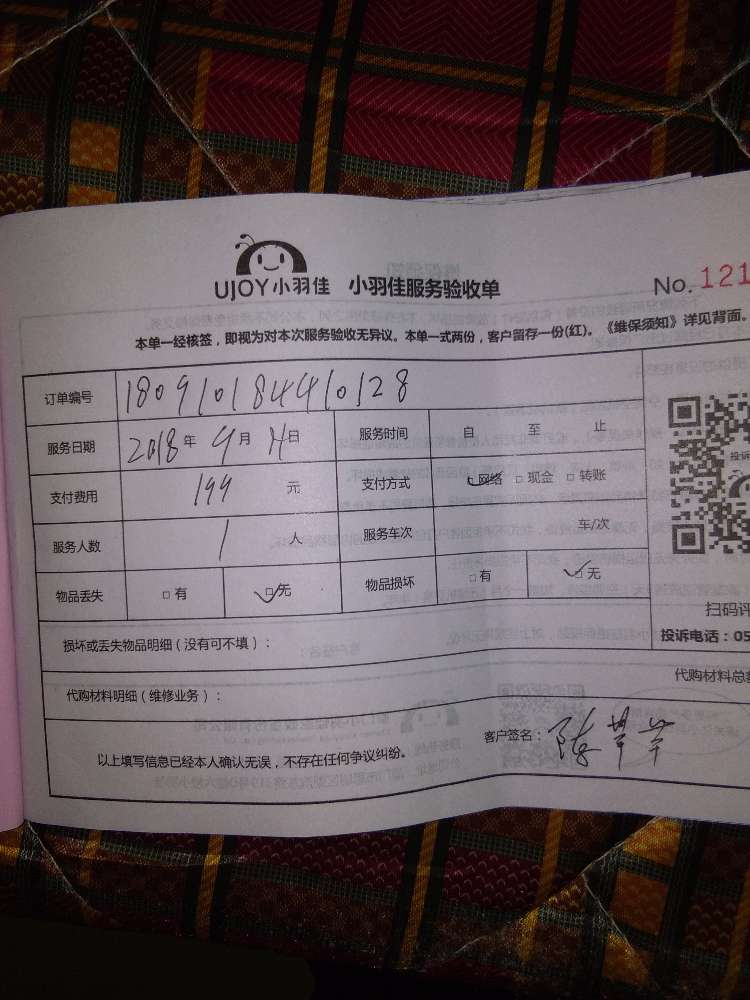 UJOY小羽佳 小羽佳服务验收单
No. 121
本单一经核签，即视为对本次服务验收无异议。本单一式两份，客户留存一份(红)。《维保须知》详见背面。
订单编号 180910184410128
服务日期 2018年 9月 11日 服务时间 自 至 止
支付费用 199 元 支付方式 □网络 □现金 □转账
服务人数 1 人 服务车次 车/次
物品丢失 □有 □无 物品损坏 □有 □无
扫码评
损坏或丢失物品明细（没有可不填）：
投诉电话：05
代购材料明细（维修业务）：
代购材料总
以上填写信息已经本人确认无误，不存在任何争议纠纷。
客户签名：陈